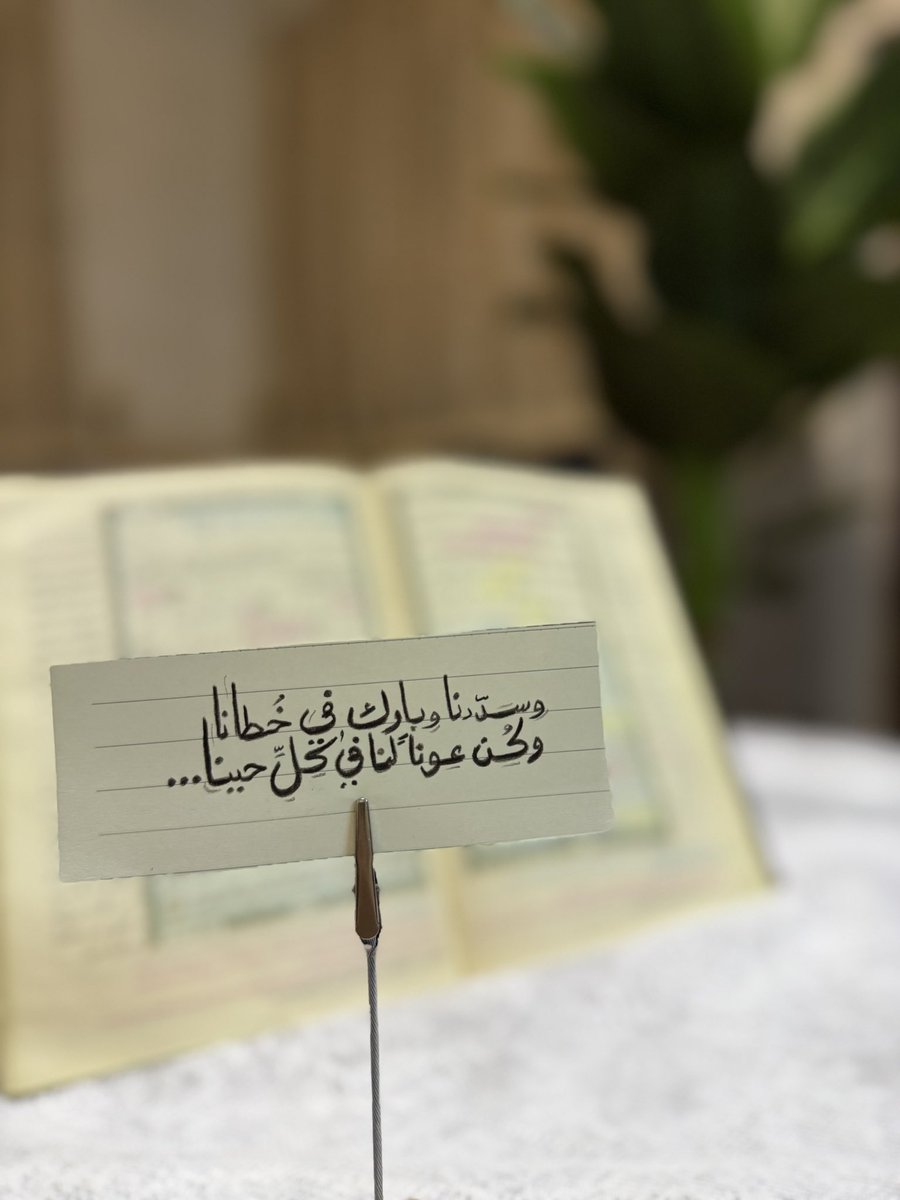 وسدّدنا وبارك في خُطانا
وكُن عوناً لنا في كلِّ حينا...